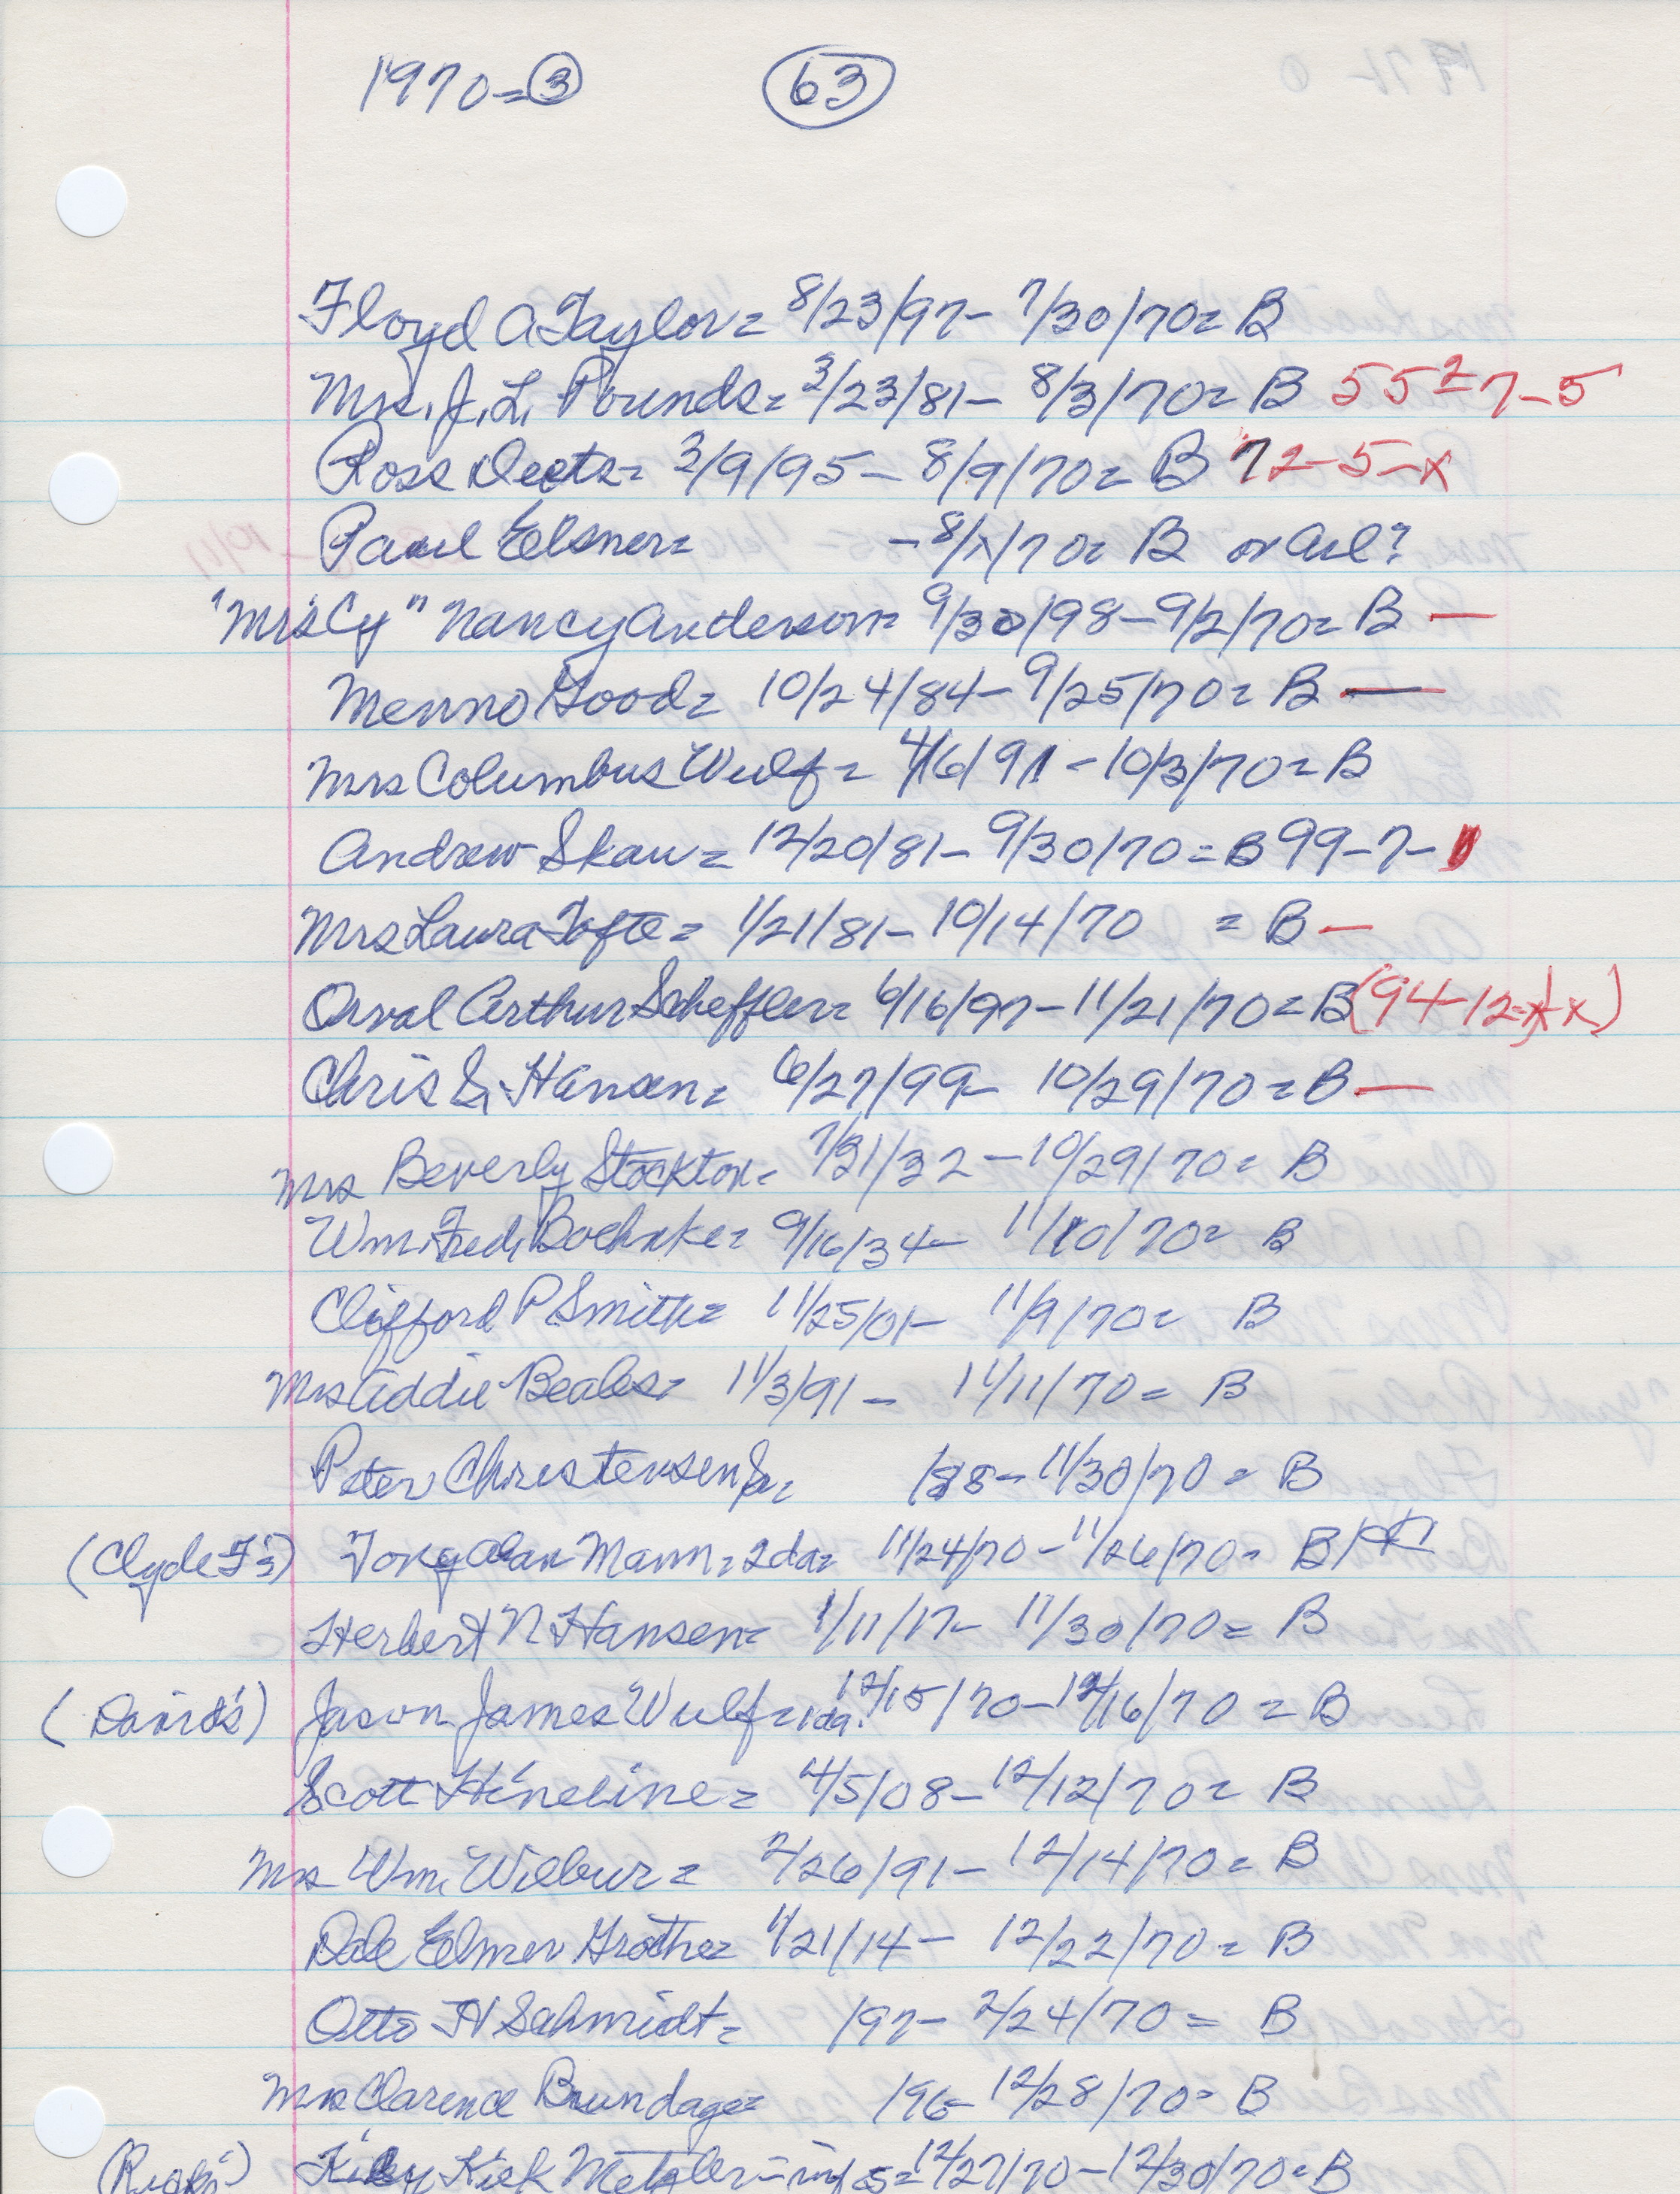 1970=③ 63
Floyd A Taylor= 8/23/97- 7/30/70= B
Mrs. J. L. Pounds= 3/23/81- 8/3/70= B 55=7-5
Ross Deets= 3/9/95- 8/9/70= B 72-5-x
Paul Elsner= -8/x/70= B or Arl?
"Mrs Cy" Nancy Anderson= 9/30/98-9/2/70= B —
Menno Good= 10/24/84- 9/25/70= B —
Mrs Columbus Wulf= 4/6/91-10/3/70= B
Andrew Skau= 12/20/81- 9/30/70=B 99-7-
Mrs Laura Tofte= 1/21/81- 10/14/70 = B —
Orval Arthur Scheffler= 6/16/97-11/21/70=B (94-12-x)
Chris S. Hansen= 6/27/99- 10/29/70=B —
Mrs Beverly Stockton= 7/31/32-10/29/70= B
Wm. Fred. Boehnke= 9/16/34- 11/10/70= B
Clifford P Smith= 11/25/01- 11/9/70= B
Mrs Addie Beales= 11/3/91- 11/11/70= B
Peter Christensen Sr= /88- 11/30/70= B
(Clyde F's) Tony Alan Mann=2da= 11/24/70-11/26/70= B
Herbert N Hansen= 1/11/17- 11/30/70= B
(David's) Jason James Wulf=1da. 12/15/70-12/16/70= B
Scott Hineline= 4/5/08- 12/12/70= B
Mrs Wm. Wilbur= 2/26/91- 12/14/70= B
Dale Elmer Grothe= 1/21/14- 12/22/70= B
Otto H Schmidt= /97- 2/24/70= B
Mrs Clarence Brundage= /96- 12/28/70= B
Kirk Metzler-inf s=12/27/70-12/30/70=B